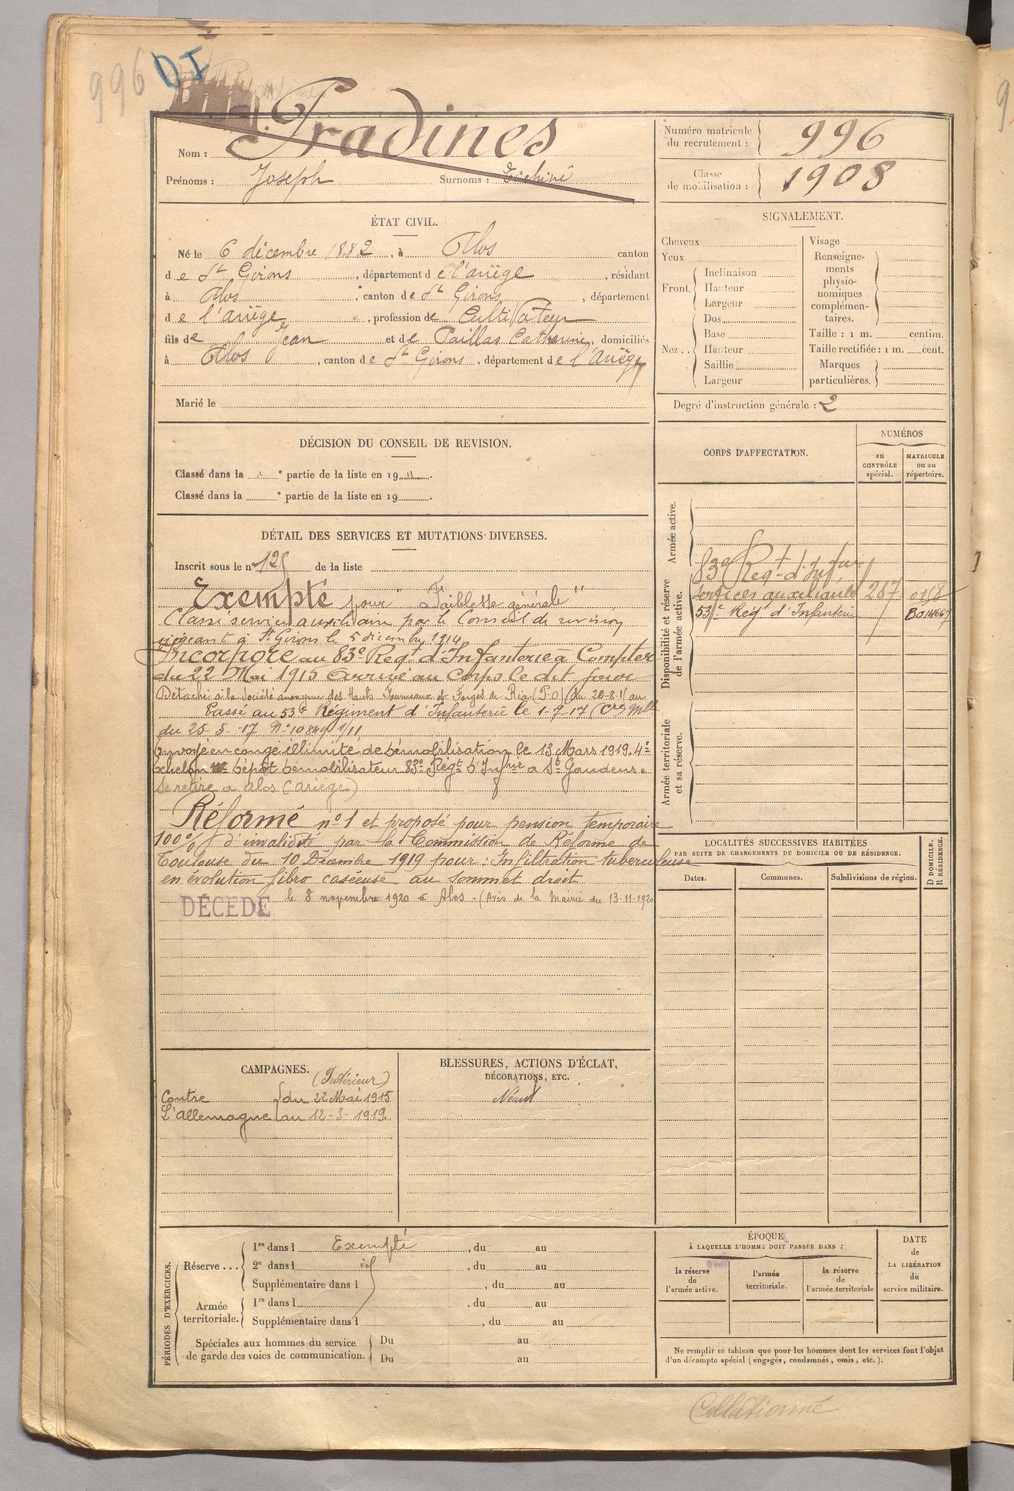 996 DI
Nom : Pradines
Prénoms : Joseph Surnoms :
Numéro matricule du recrutement : 996
Classe de mobilisation : 1908
ÉTAT CIVIL.
Né le 6 décembre 1882, à Alos canton
de St Girons, département de l'ariège, résidant
à Alos, canton de St Girons, département
de l'ariège, profession de Cultivateur
fils de Jean et de Paillas Catherine, domiciliés
à Alos, canton de St Girons, département de l'Ariège
Marié le
SIGNALEMENT.
Cheveux
Yeux
Front. Inclinaison
Hauteur
Largeur
Nez.. Dos
Base
Hauteur
Saillie
Largeur
Visage
Renseigne-
ments
physio-
nomiques
complémen-
taires.
Taille : 1 m. centim.
Taille rectifiée : 1 m. cent.
Marques
particulières.
Degré d'instruction générale : 2
DÉCISION DU CONSEIL DE REVISION.
Classé dans la " e partie de la liste en 19 "
Classé dans la e partie de la liste en 19
DÉTAIL DES SERVICES ET MUTATIONS DIVERSES.
Inscrit sous le n° 125 de la liste
Exempté pour "Faiblesse générale"
Classé service auxiliaire par le Conseil de revision
siégeant à St Girons le 5 décembre 1914
Incorporé au 83e Regt d'Infanterie à Compter
du 22 Mai 1915 Arrivé au Corps le dit jour
Détaché à la Société anonyme des Hauts Fourneaux et Forges de Ria (P.O) du 20-8-16 au
Passé au 53e Régiment d'Infanterie le 1-7-17 (Cre Mlle
du 25-5-17 N° 10849 1/11
Envoyé en congé illimité de démobilisation le 13 Mars 1919. 4e
échelon dépôt démobilisateur 83e Régt d'Infrie à St Gaudens.
Se retire à Alos (Ariège)
Réformé n° 1 et proposé pour pension temporaire
100% d'invalidité par la Commission de Réforme de
Toulouse du 10 Décembre 1919 pour : Infiltration tuberculeuse
en évolution fibro caséeuse au sommet droit
DÉCÉDÉ le 8 novembre 1920 à Alos - (Avis de la Mairie du 13-11-1920
CORPS D'AFFECTATION.
NUMÉROS
au
CONTRÔLE
spécial.
MATRICULE
ou au
répertoire.
Armée active.
Disponibilité et réserve
de l'armée active.
83e Regt d'Infan
services auxiliaires 287
53e Régt d'Infanterie
Armée territoriale
et sa réserve.
LOCALITÉS SUCCESSIVES HABITÉES
PAR SUITE DE CHANGEMENTS DE DOMICILE OU DE RÉSIDENCE.
Dates.
Communes.
Subdivisions de région.
D DOMICILE,
R RÉSIDENCE.
CAMPAGNES.
(Intérieur)
Contre du 22 Mai 1915
L'Allemagne au 12-3-1919
BLESSURES, ACTIONS D'ÉCLAT,
DÉCORATIONS, ETC.
Néant
PÉRIODES D'EXERCICES.
Réserve ... 1re dans l Exempté, du au
2e dans l, du au
Supplémentaire dans l, du au
Armée
territoriale. 1re dans l, du au
Supplémentaire dans l, du au
Spéciales aux hommes du service
de garde des voies de communication. Du au
Du au
ÉPOQUE
À LAQUELLE L'HOMME DOIT PASSER DANS :
la réserve
de
l'armée active.
l'armée
territoriale.
la réserve
de
l'armée territoriale
DATE
de
LA LIBÉRATION
du
service militaire.
Ne remplir ce tableau que pour les hommes dont les services font l'objet
d'un décompte spécial (engagés, condamnés, omis, etc.).
Collationné